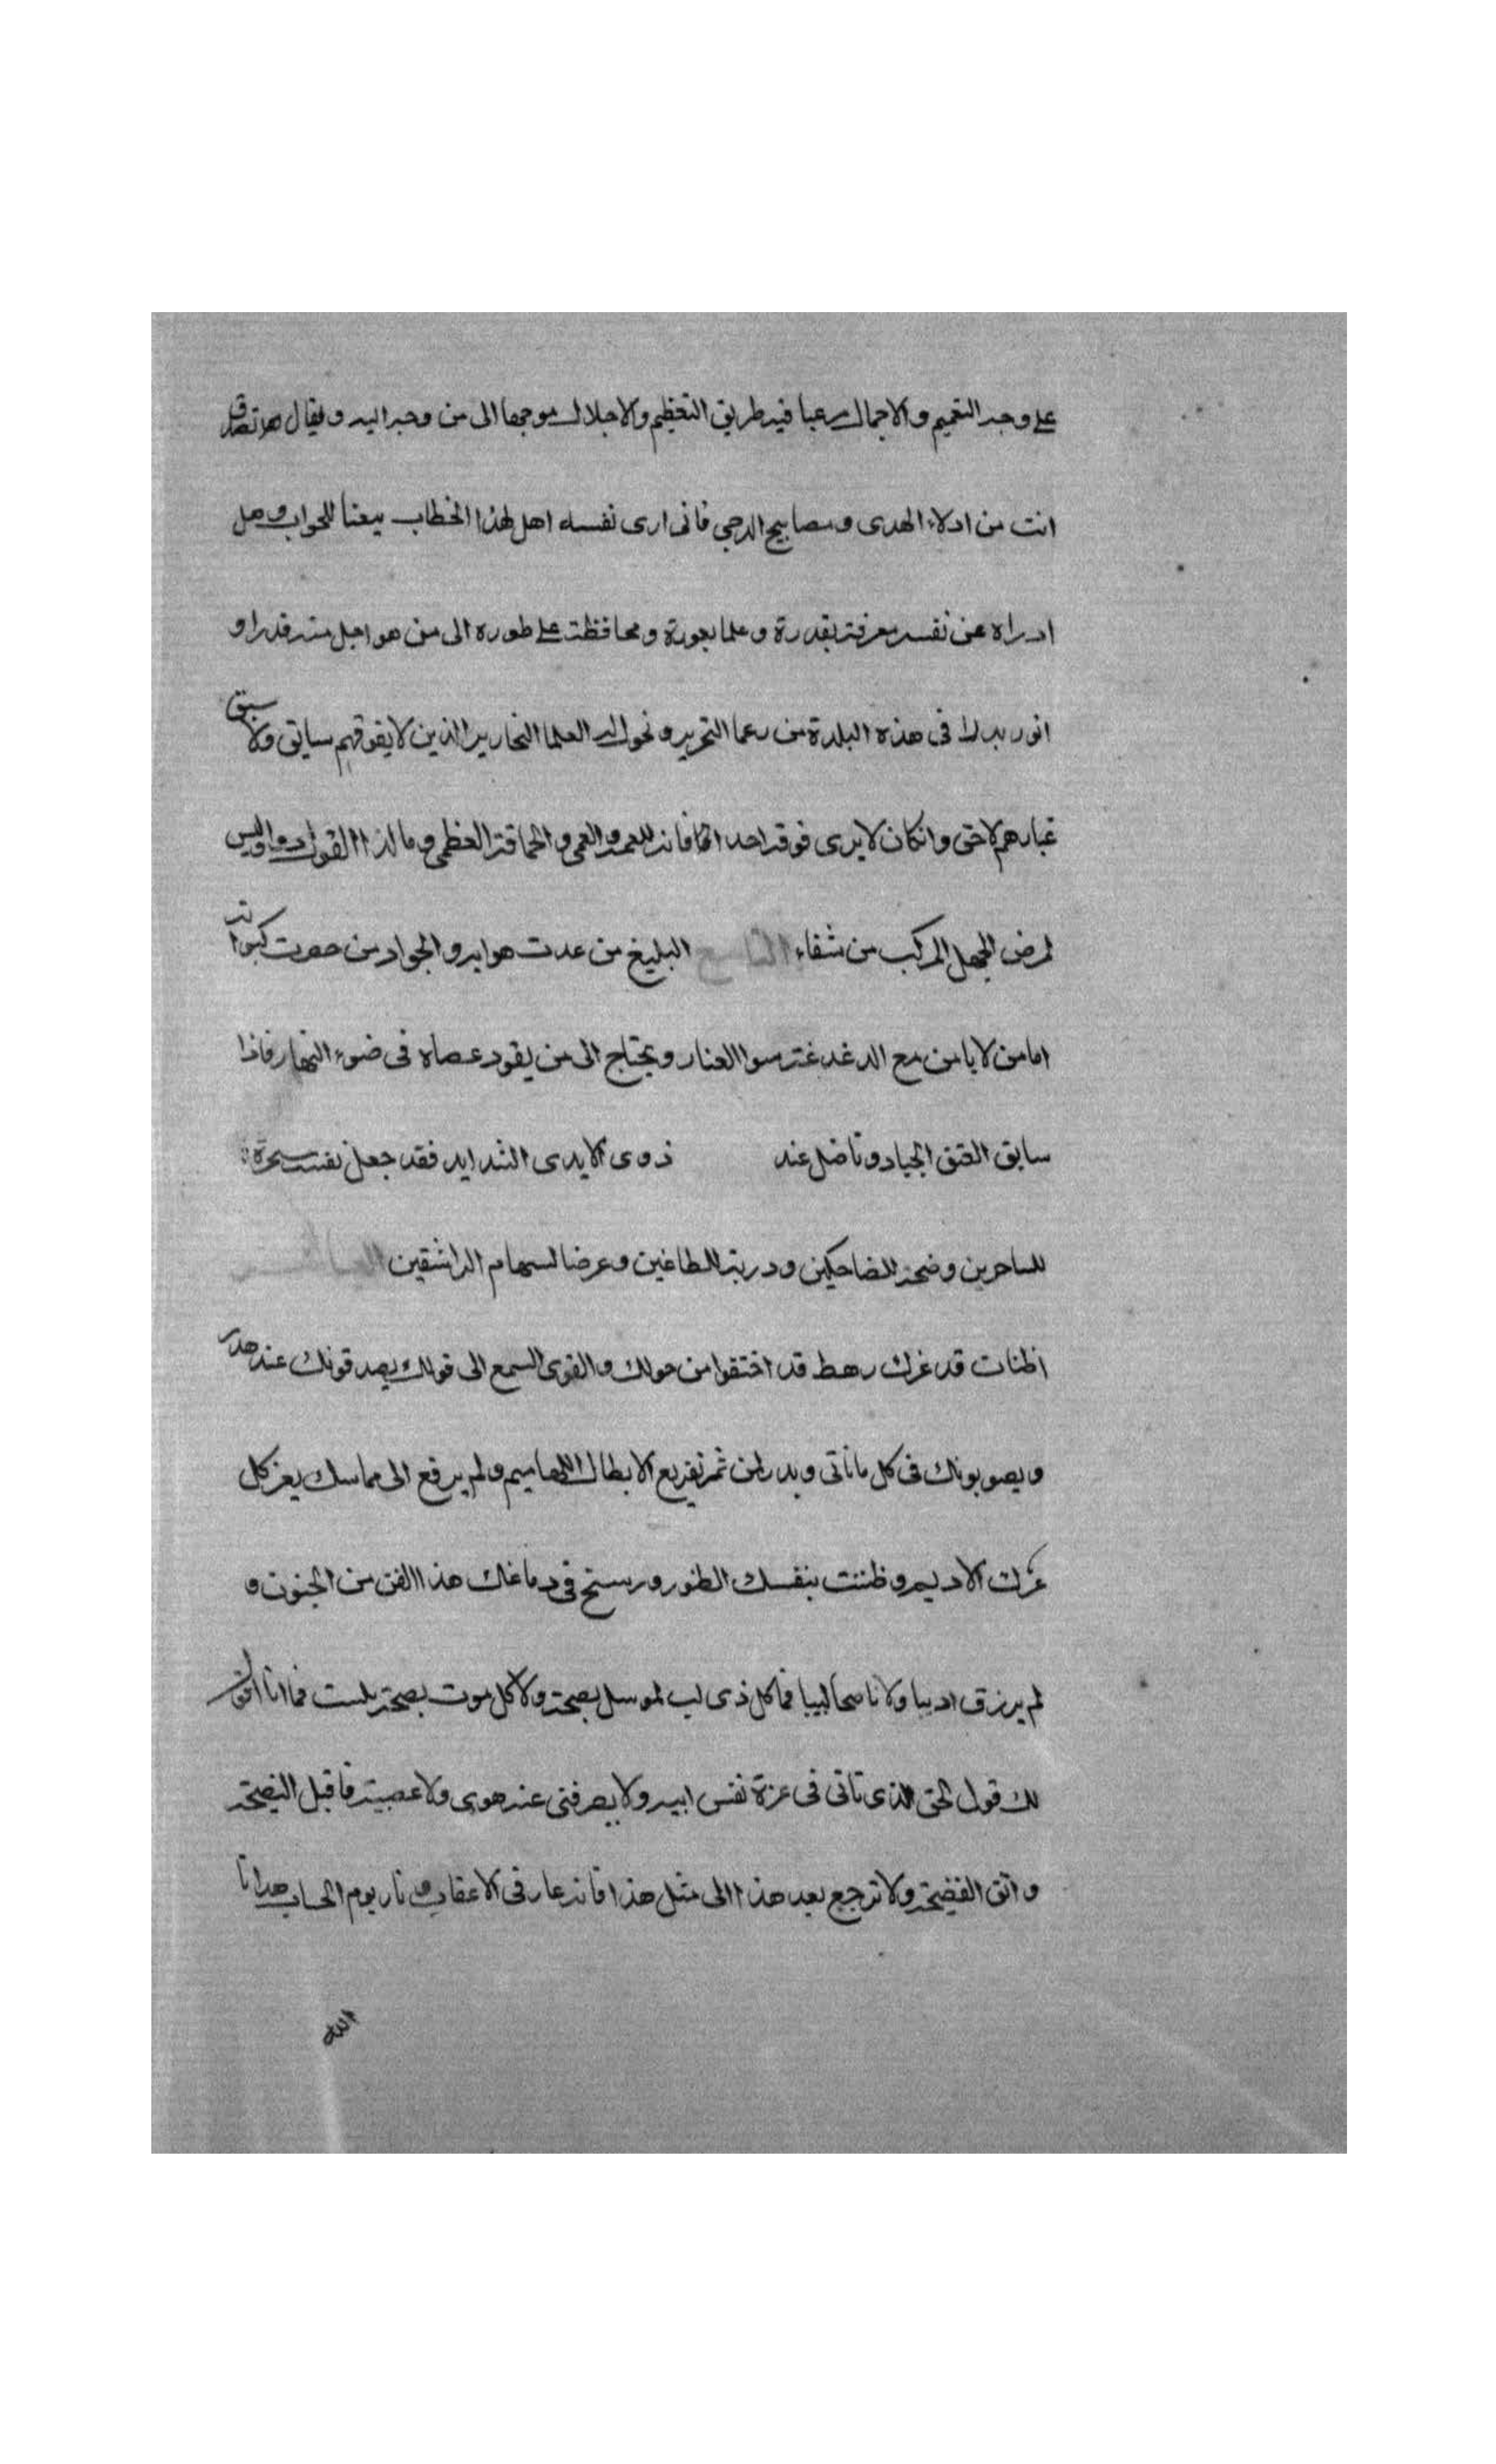 على وجه التعميم والاجمال مرعيا فيه طريق التعظيم والاجلال موجها الى من وجه اليه ويقال هل
انت من ادلاء الهدى ومصابيح الدجى فانى ارى نفسه اهل لهذا الخطاب للجواب وهل
ادراه عن نفسه معرفة بقدرة وعلما بعورة ومحافظة على طوره الى من هو اجل منه قدرا و
انور بدرا فى هذه البلدة من العلما النحارير الذين لا يفوقهم سابق ولا
غبارهم لاحق وانكان لا يرى فوقه احدا فانه العمى والحماقة العظمى وما لذا القول دوا وليس
لمرض الجهل المركب من شفاء التاسع البليغ من عدت هوابه والجواد من حصرت
اما من لا يامن مع الدغدغة سوا العثار ويحتاج الى من يقود عصاه فى ضوء النهار فاذا
سابق العتق الجياد وناضل عند ذوى الايدى الشدايد فقد جعل نفسه سخرة
للساخرين وضحة للضاحكين ودرية للطاعنين وعرضا لسهام الراشقين العاشر
اظنات قد غرك رهط قد احتفوا من حولك والقوى السمع الى قولك يصدقونك عند
ويصوبونك فى كل ما تاتى وبدر لمن ثم تقريع الابطال اللهاميم ولم يرفع الى مماسك يعرك
عرك الاديم وظننت بنفسك الظنون ورسخ فى دماغك هذا الفن من الجنون و
لم يرزق اديبا ولا ناصحا لبيبا فما كل ذى لب ولا كل موت فما انا
لك قول الحق الذى تاتى فى عزة نفس ابيه ولا يصرفنى عنه هوى ولا عصبية فاقبل النصيحة
واتق الفضيحة ولا ترجع بعد هذا الى مثل هذا فانه عار فى الاعقاب ونار يوم الحساب هدانا
الله